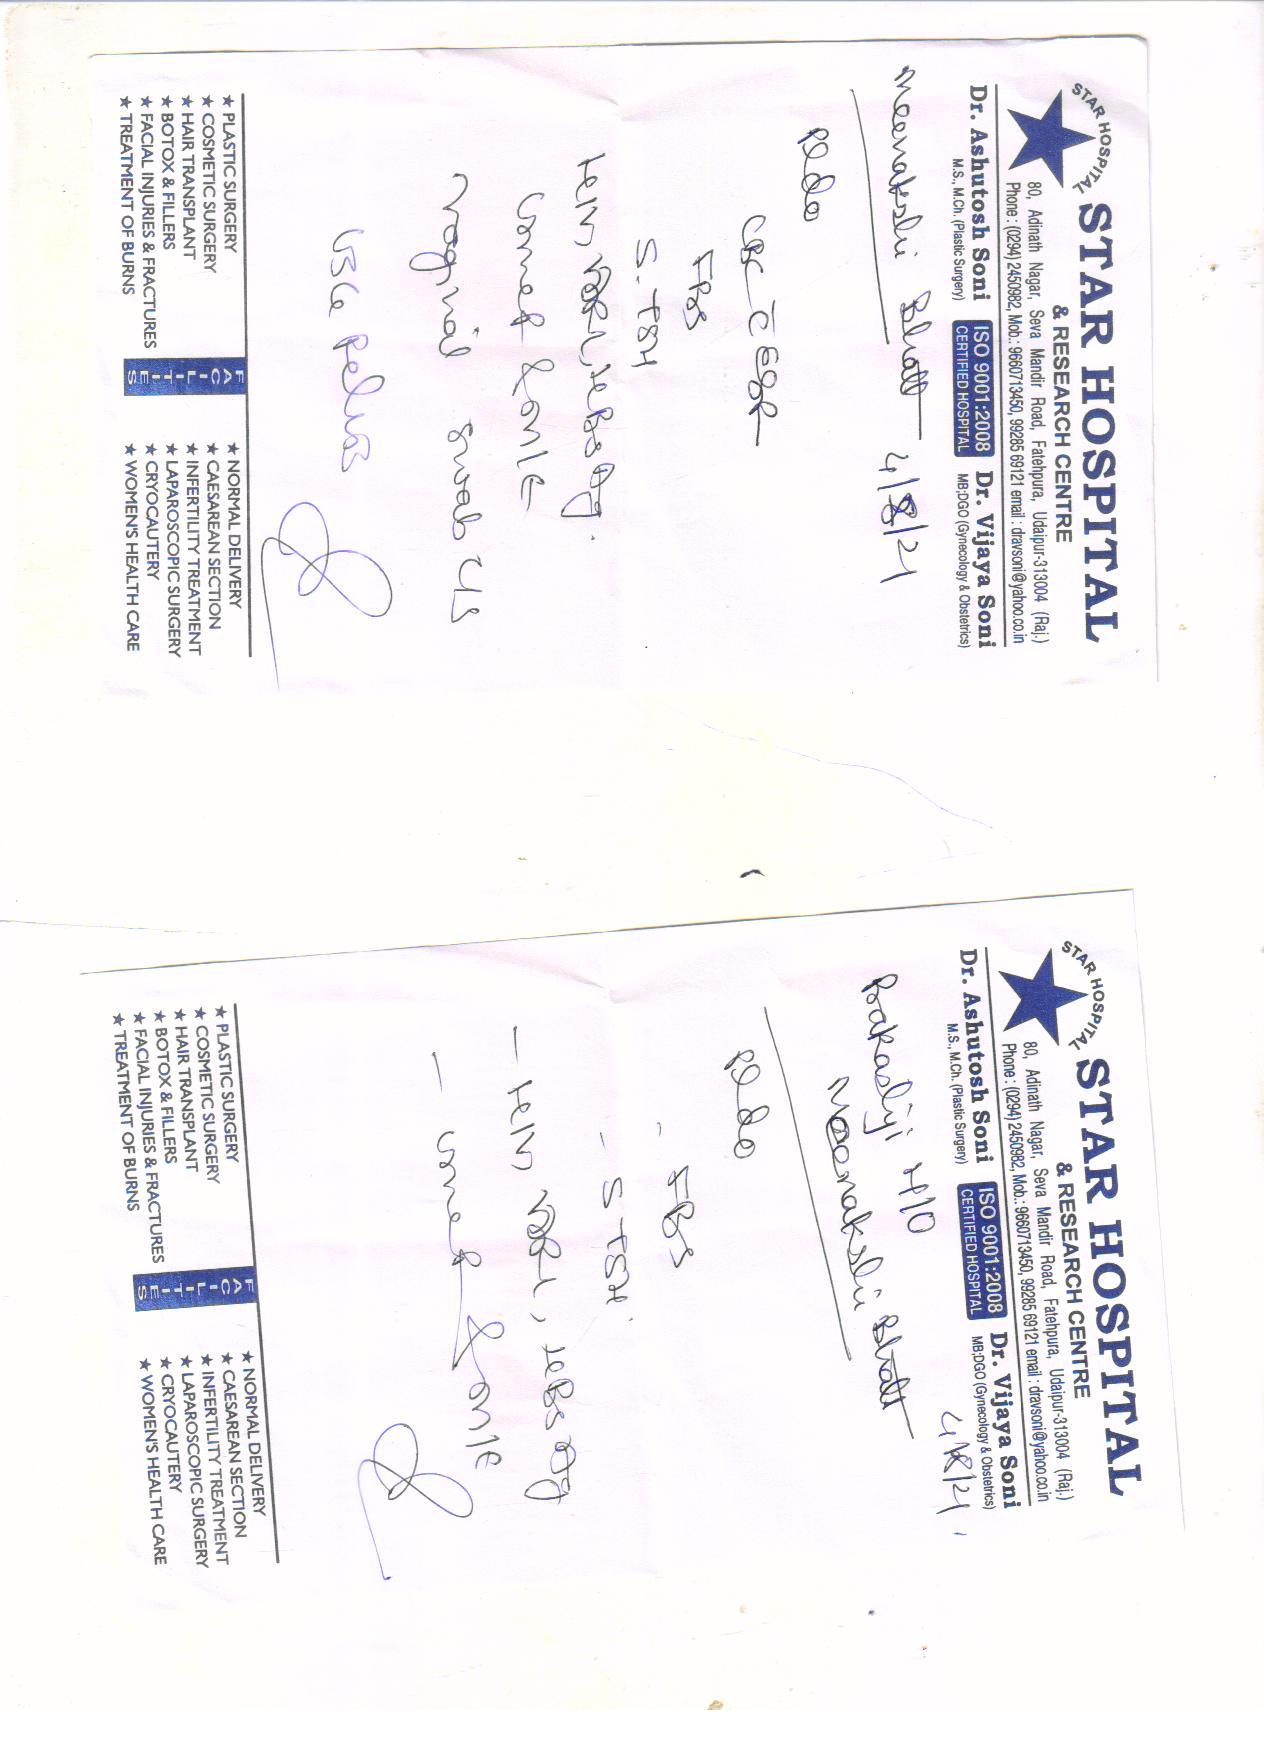 STAR HOSPITAL
STAR HOSPITAL
& RESEARCH CENTRE
80, Adinath Nagar, Seva Mandir Road, Fatehpura, Udaipur-313004 (Raj.)
Phone : (0294) 2450982, Mob.: 9660713450, 99285 69121 email : dravsoni@yahoo.co.in
Dr. Ashutosh Soni
M.S., M.Ch. (Plastic Surgery)
ISO 9001:2008
CERTIFIED HOSPITAL
Dr. Vijaya Soni
MB;DGO (Gynecology & Obstetrics)
Meenakshi Bhatt 4/8/21
Pl do
CBC C̄ ESR
FBS
S. TSH
HIV, VDRL, HBsAg.
Urine R/M/E
Vaginal Swab C/S
USG Pelvis
★ PLASTIC SURGERY
★ COSMETIC SURGERY
★ HAIR TRANSPLANT
★ BOTOX & FILLERS
★ FACIAL INJURIES & FRACTURES
★ TREATMENT OF BURNS
FACILITIES
★ NORMAL DELIVERY
★ CAESAREAN SECTION
★ INFERTILITY TREATMENT
★ LAPAROSCOPIC SURGERY
★ CRYOCAUTERY
★ WOMEN'S HEALTH CARE
STAR HOSPITAL
STAR HOSPITAL
& RESEARCH CENTRE
80, Adinath Nagar, Seva Mandir Road, Fatehpura, Udaipur-313004 (Raj.)
Phone : (0294) 2450982, Mob.: 9660713450, 99285 69121 email : dravsoni@yahoo.co.in
Dr. Ashutosh Soni
M.S., M.Ch. (Plastic Surgery)
ISO 9001:2008
CERTIFIED HOSPITAL
Dr. Vijaya Soni
MB;DGO (Gynecology & Obstetrics)
4/8/21
Prakashji H/O
Meenakshi Bhatt
Pl do
- FBS
- S TSH.
- HIV, VDRL, HBsAg
- Urine R/M/E
★ PLASTIC SURGERY
★ COSMETIC SURGERY
★ HAIR TRANSPLANT
★ BOTOX & FILLERS
★ FACIAL INJURIES & FRACTURES
★ TREATMENT OF BURNS
FACILITIES
★ NORMAL DELIVERY
★ CAESAREAN SECTION
★ INFERTILITY TREATMENT
★ LAPAROSCOPIC SURGERY
★ CRYOCAUTERY
★ WOMEN'S HEALTH CARE